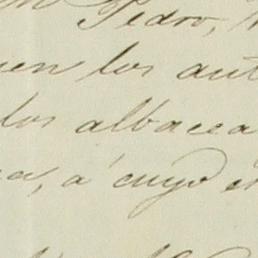 Pedro,
uen los aut
los albacea
a, á cuyo e